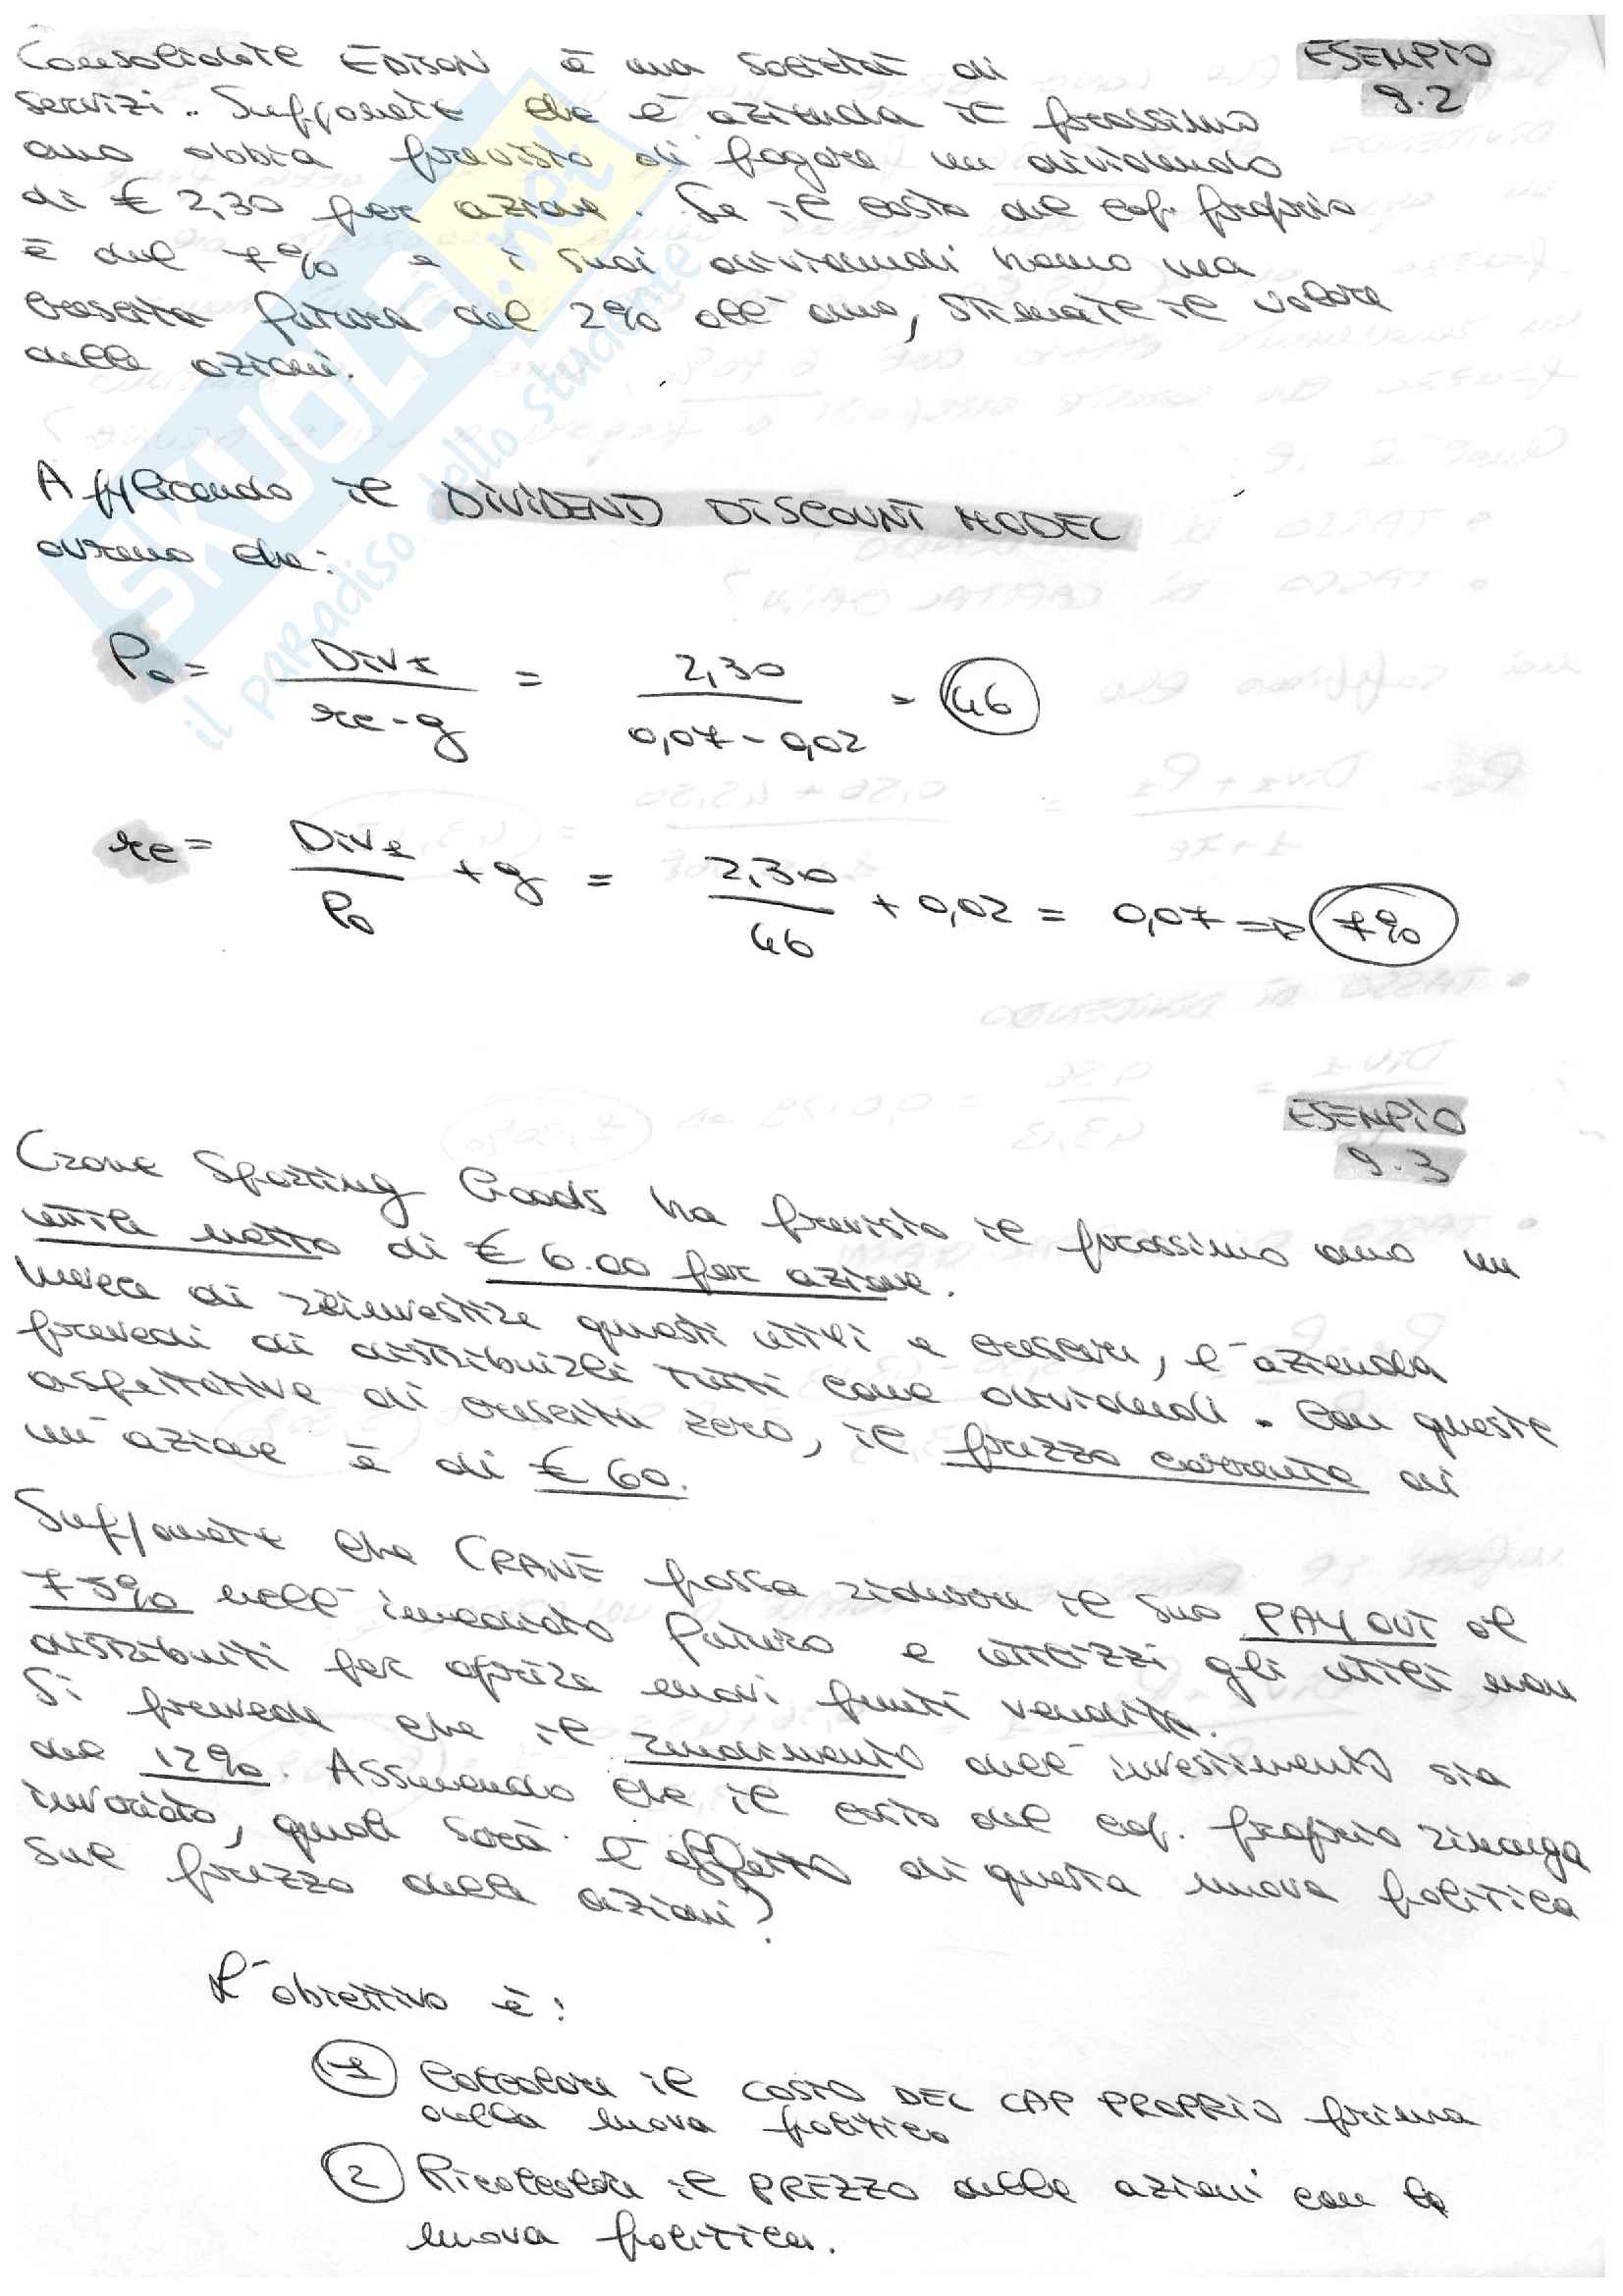 Consolidate EDISON è una società di
ESEMPIO
9.2
servizi. Supponete che l'azienda il prossimo
anno abbia previsto di pagare un dividendo
di € 2,30 per azione. Se il costo del cap. proprio
è del 7% e i suoi dividendi hanno una
crescita futura del 2% all'anno, stimate il valore
delle azioni.
Applicando il DIVIDEND DISCOUNT MODEL
avremo che:
P0 = Div1 / re - g = 2,30 / 0,07 - 0,02 = 46
re = Div1 / P0 + g = 2,30 / 46 + 0,02 = 0,07 => 7%
ESEMPIO
9.3
Crane Sporting Goods ha previsto il prossimo anno un
utile netto di € 6.00 per azione.
Invece di reinvestire questi utili e crescere, l'azienda
prevedi di distribuirli tutti come dividendi. Con queste
aspettative di crescita zero, il prezzo corrente di
un'azione è di € 60.
Supponete che CRANE possa ridurre il suo PAY OUT al
75% nell'immediato futuro e utilizzi gli utili non
distribuiti per aprire nuovi punti vendita.
Si prevede che il rendimento dell'investimento sia
del 12%. Assumendo che il costo del cap. proprio rimanga
invariato, quale sarà l'effetto di questa nuova politica
sul prezzo delle azioni?
L'obiettivo è:
1 Calcolare il COSTO DEL CAP PROPRIO prima
della nuova politica
2 Ricalcolare il PREZZO delle azioni con la
nuova politica.
SKUOLA.net
il paradiso dello studente